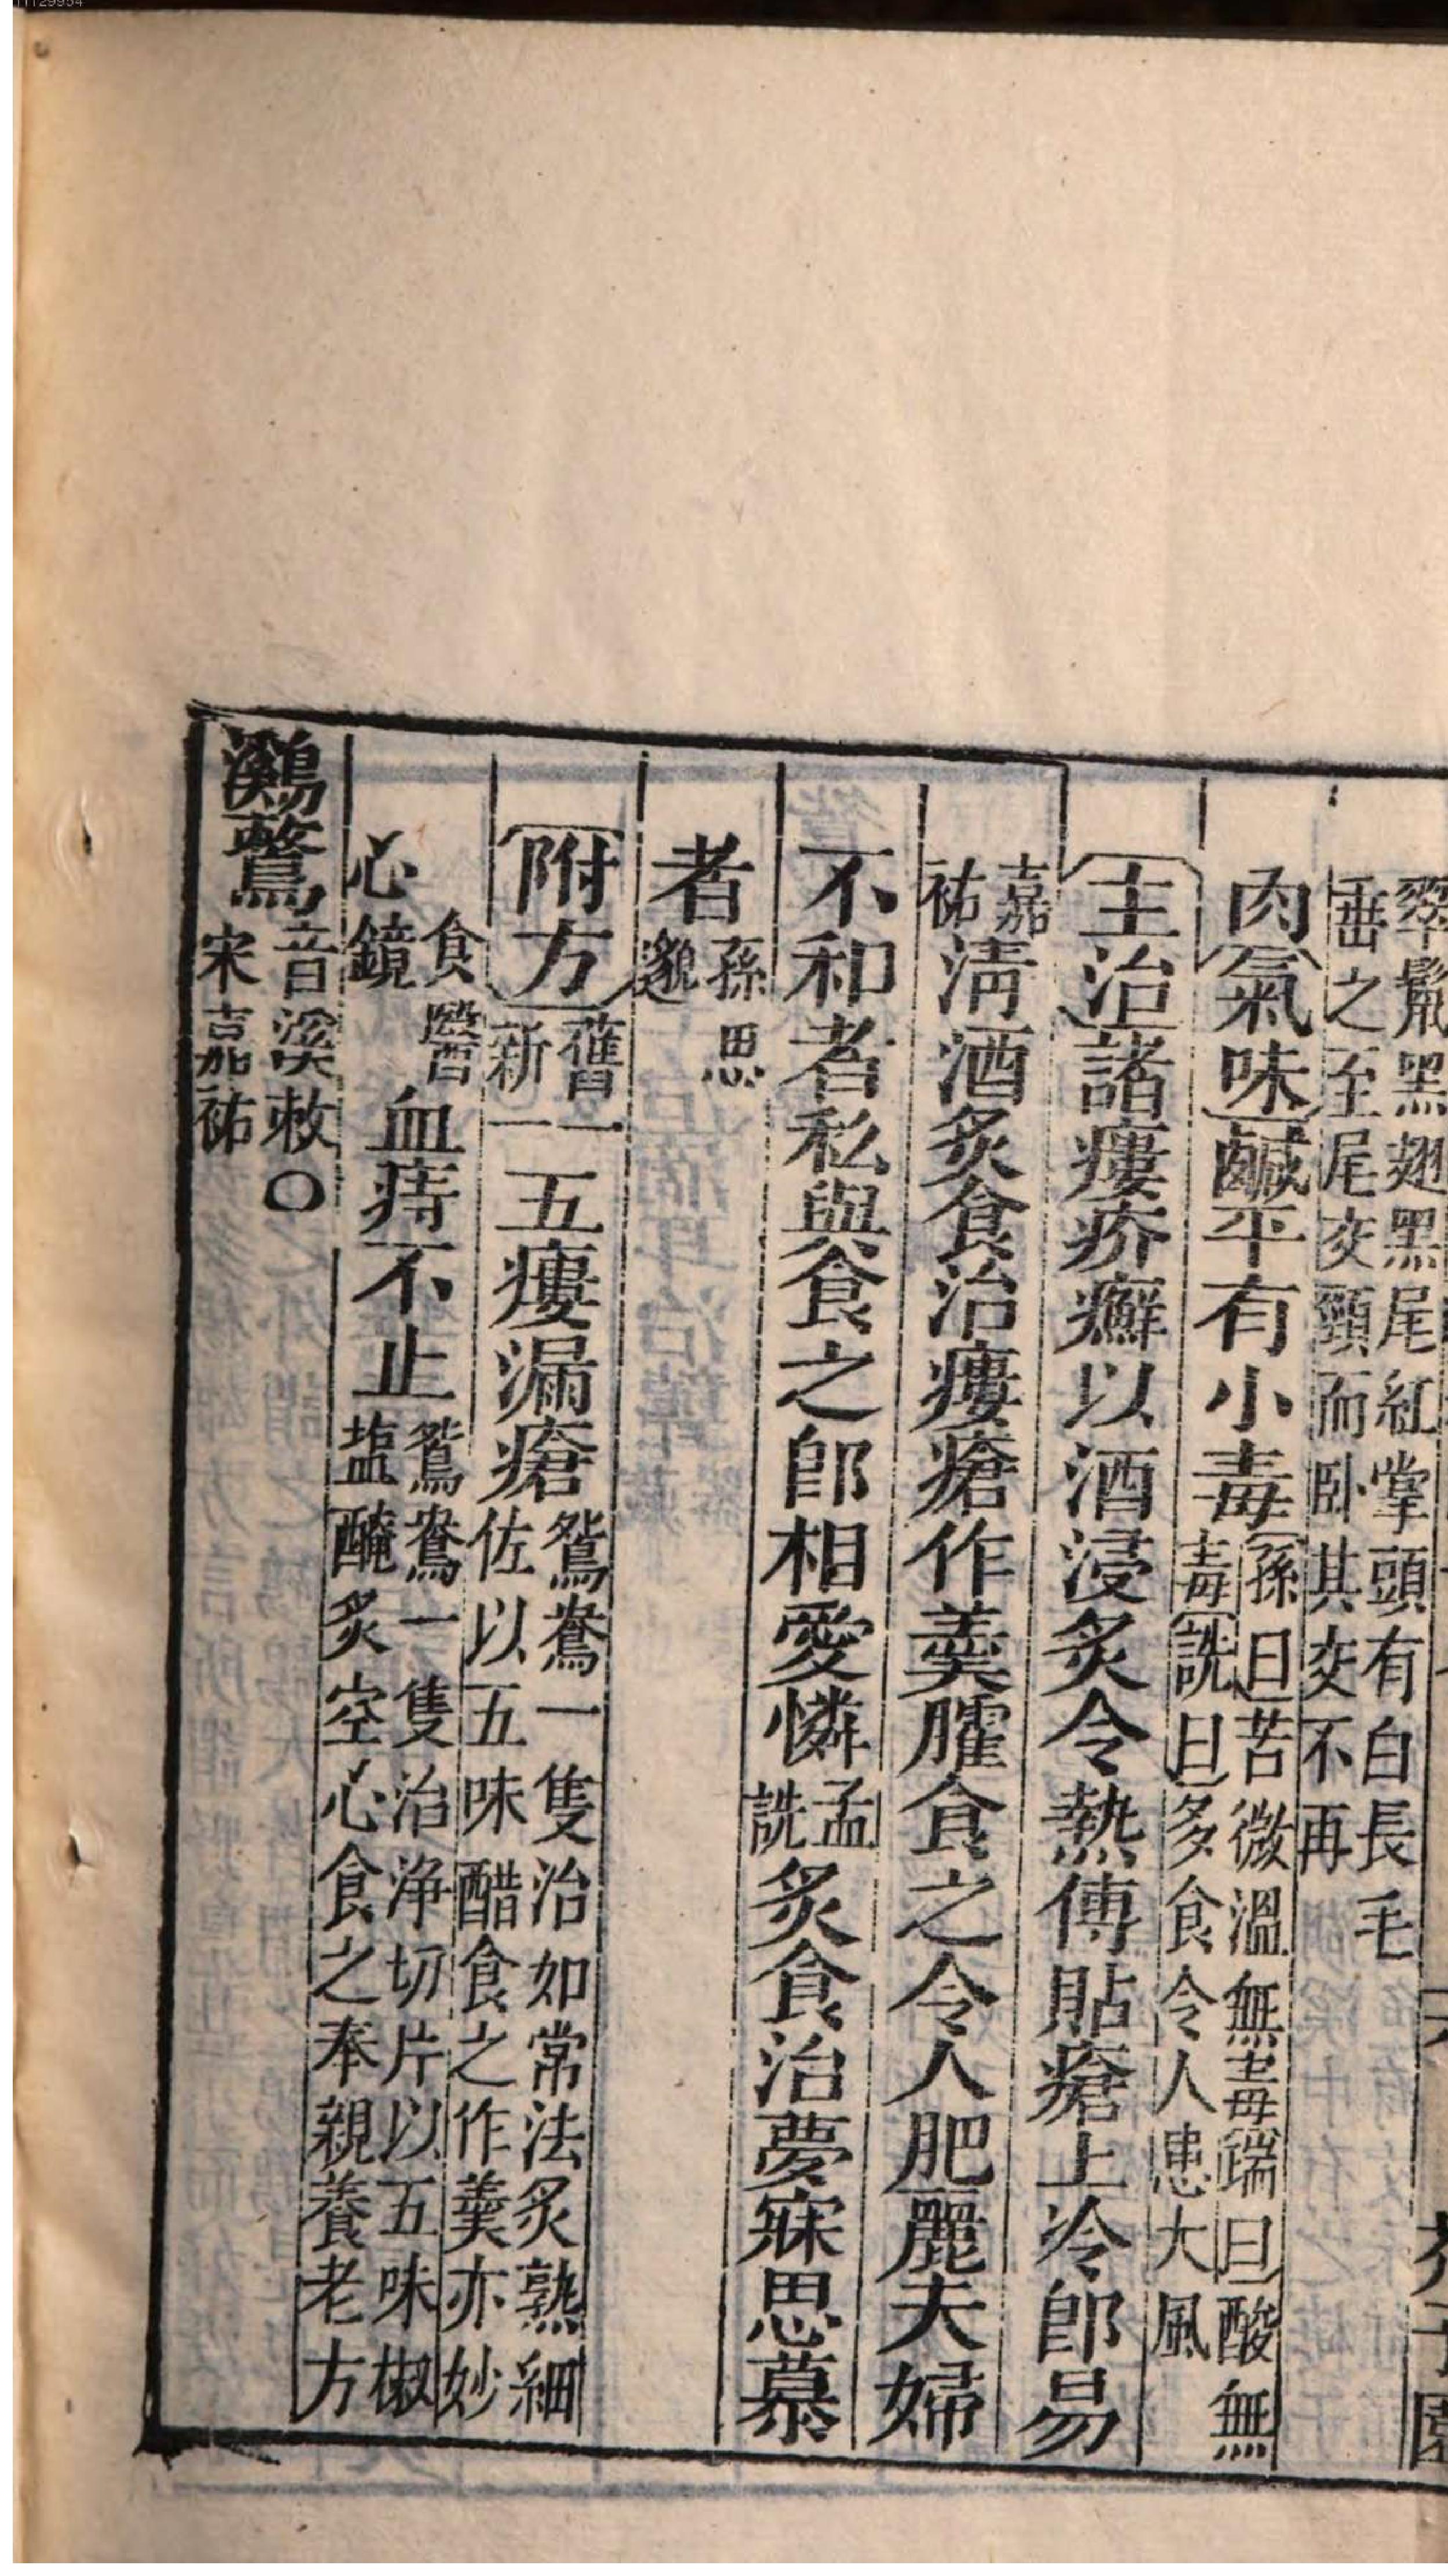 翠鬛黑翅黑尾紅掌頭有白長毛
垂之至尾交頸而卧其交不再
肉氣味鹹平有小毒孫曰苦微溫無毒瑞曰酸無
毒詵曰多食令人患大風
主治諸瘻疥癬以酒浸炙令熱傅貼瘡上冷卽易
嘉祐清酒炙食治瘻瘡作羹臛食之令人肥麗夫婦
不和者私與食之卽相愛憐孟詵炙食治夢寐思慕
者孫思邈
附方舊一新一五瘻漏瘡鴛鴦一隻治如常法炙熟細
佐以五味醋食之作羹亦妙
食醫心鏡血痔不止鴛鴦一隻治浄切片以五味椒
塩醃炙空心食之奉親養老方
鸂鷘音溪敕○
宋嘉祐
11129954